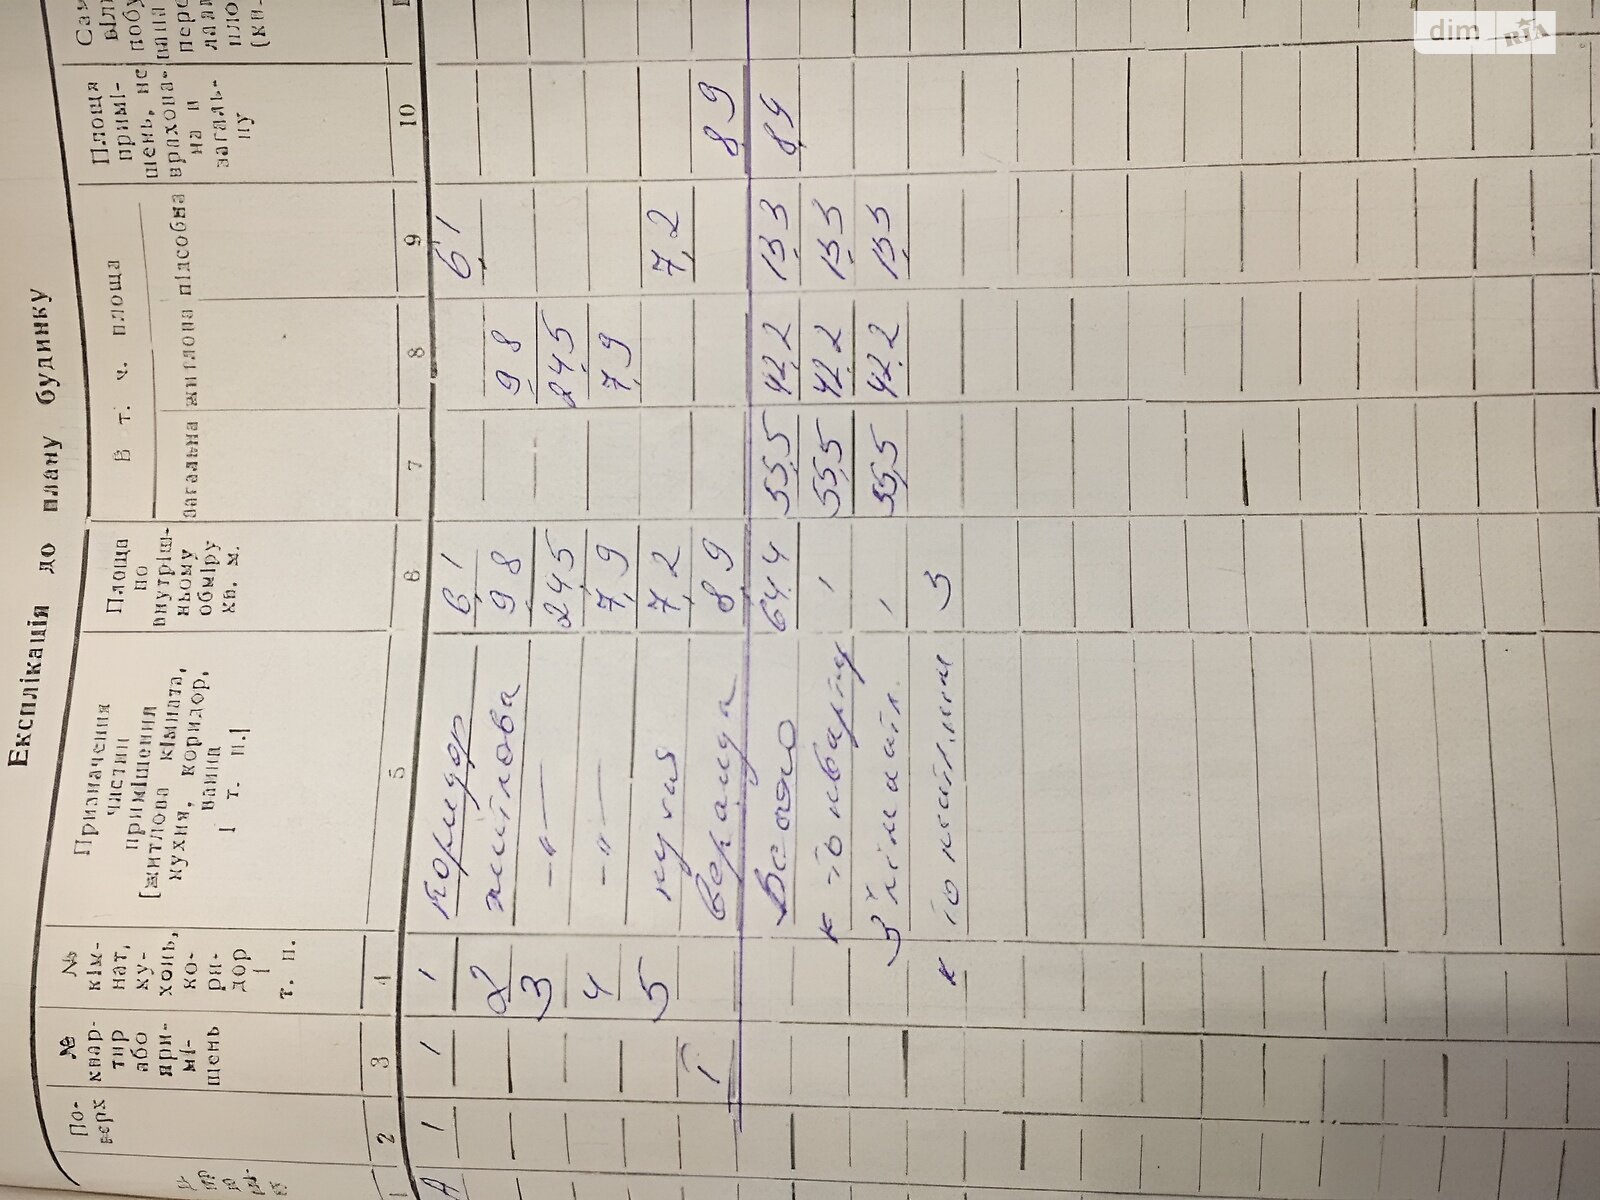 Експлікація до плану будинку
По-
верх
№
квар-
тир
або
при-
мі-
щень
№
кім-
нат,
ку-
хонь,
ко-
ри-
дор
і
т. п.
Призначення
частин
приміщення
[житлова кімната,
кухня, коридор,
ванна
і т. п.]
Площа
по
внутріш-
ньому
обміру
кв. м.
В т. ч. площа
загальна
житлова
підсобна
Площа
примі-
щень, не
врахова-
на в
загаль-
ну
1 2 3 4 5 6 7 8 9 10
А 1 1 1 коридор 6,1 6,1
2 житлова 9,8 9,8
3 -"- 24,5 24,5
4 -"- 7,9 7,9
5 кухня 7,2 7,2
I веранда 8,9 8,9
Всього 64,4 55,5 42,2 13,3 8,9
к-ть квартир 1 55,5 42,2 13,3
3 кімнатн. 1 55,5 42,2 13,3
к-ть кімнат 3
dim RIA